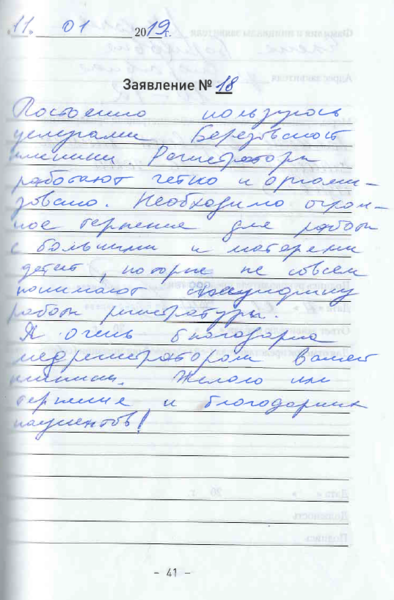 11. 01 2019 г.
Заявление № 18
Постоянно пользуюсь
услугами Березовской
клиники. Регистраторы
работают четко и органи-
зовано. Необходимо огром-
ное терпение для работы
с больными и матерями
детей, которые не совсем
понимают
работы регистратуры.
Я очень благодарна
медрегистраторам вашей
клиники. Желаю им
терпения и благодарных
пациентов!
- 41 -